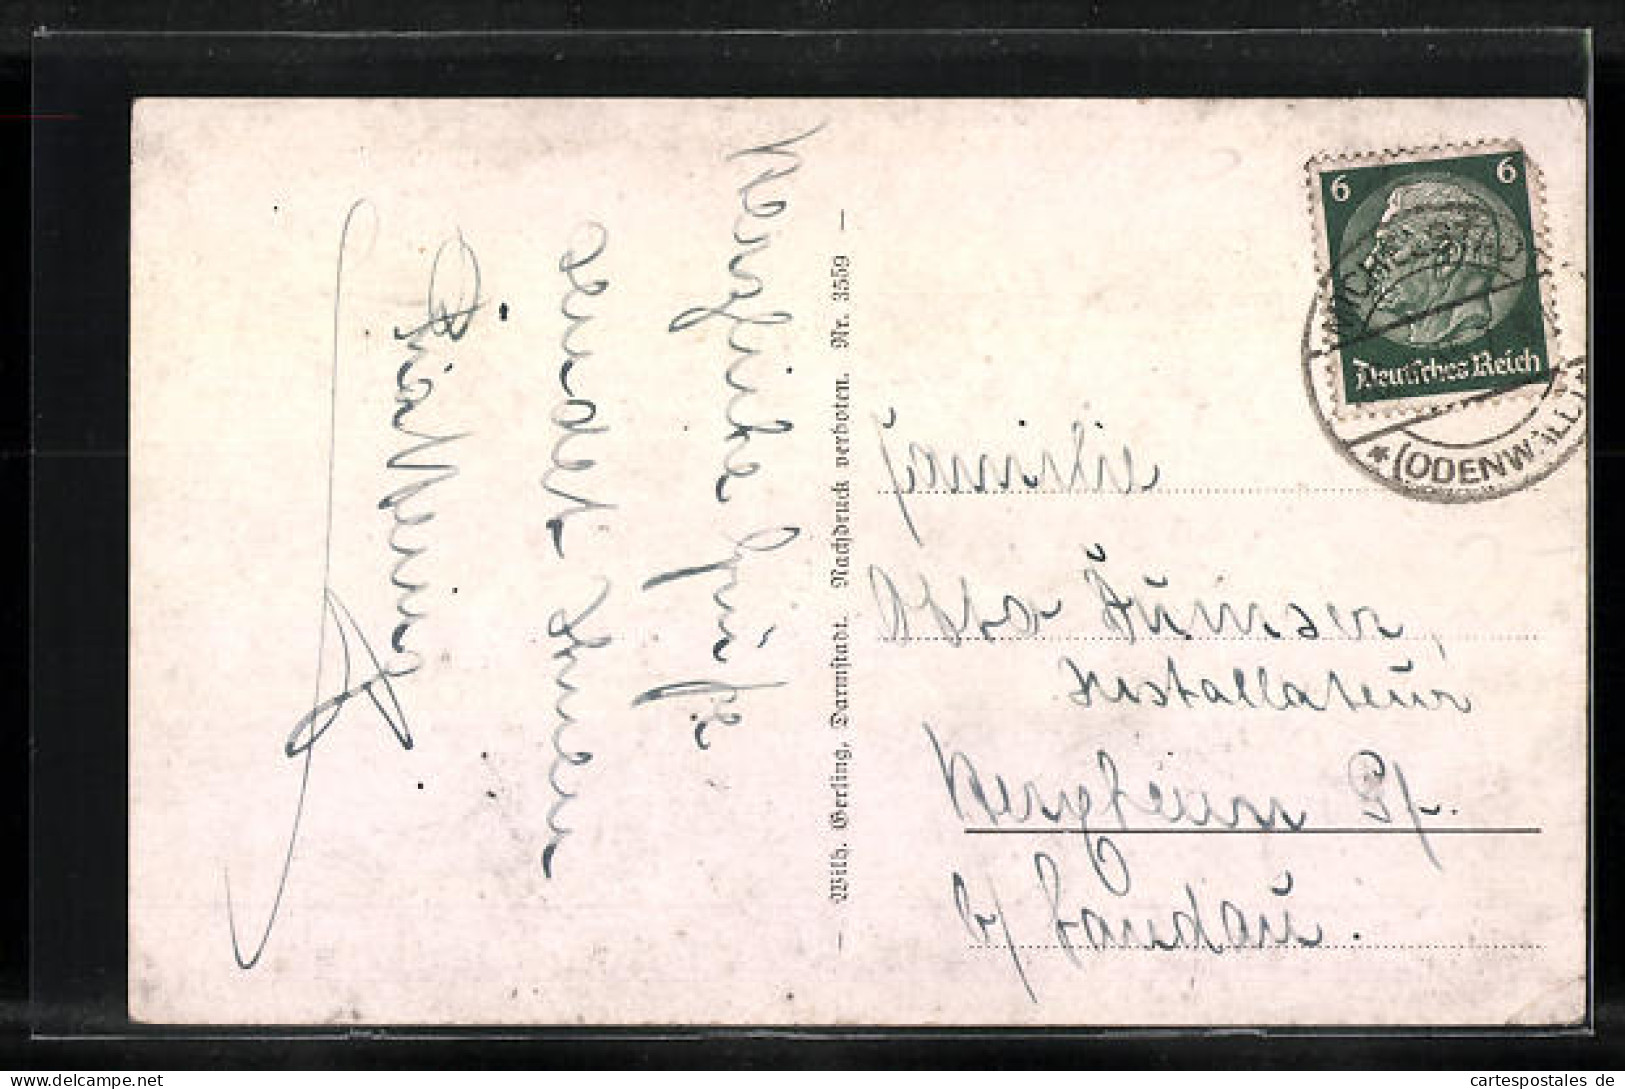 Herzliche Grüße
sendet Ihnen
— Wilh. Gerling, Darmstadt. Nachdruck verboten. Nr. 3559 —
6 6
Deutsches Reich
MICHELSTADT
* (ODENWALD) *
Familie
Otto
Installateur
Bergheim Pf.
b/ Landau.
cartespostales de